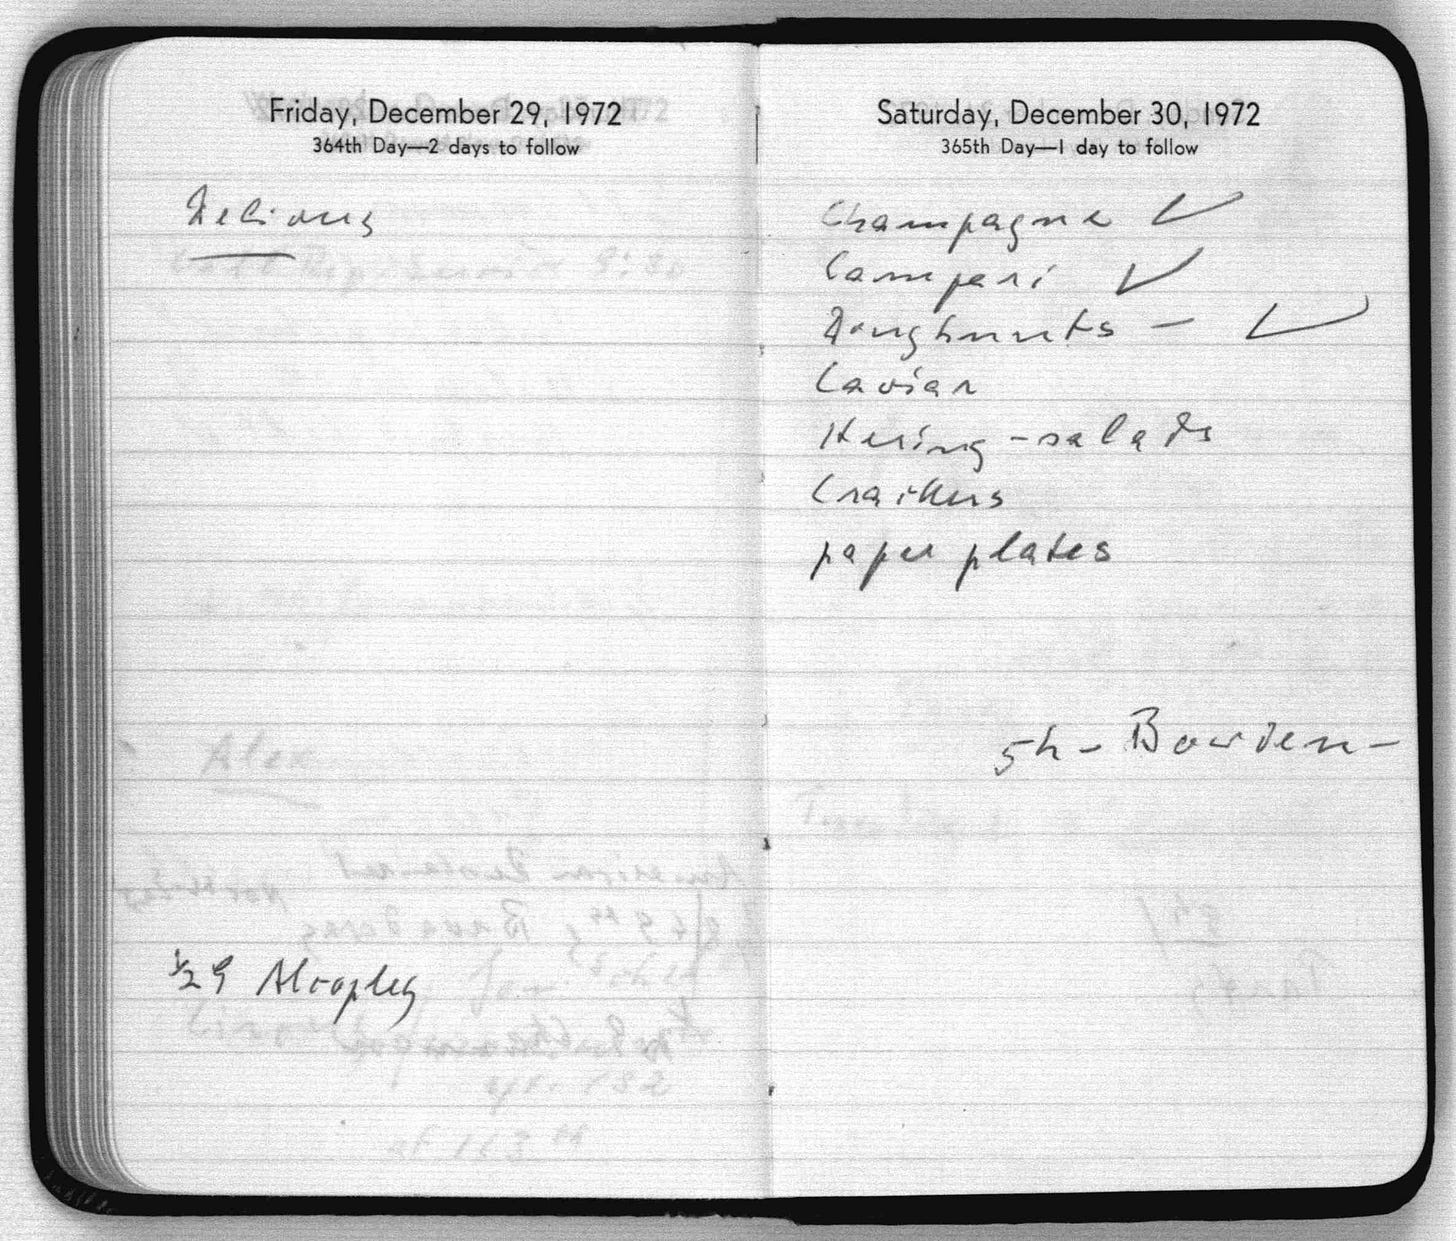 Friday, December 29, 1972
364th Day—2 days to follow
½ 9 Alcopley
Saturday, December 30, 1972
365th Day—1 day to follow
Champagne ✓
Campari ✓
Doughnuts — ✓
Caviar
Hering-salads
Crackers
paper plates
5h - Bowden -